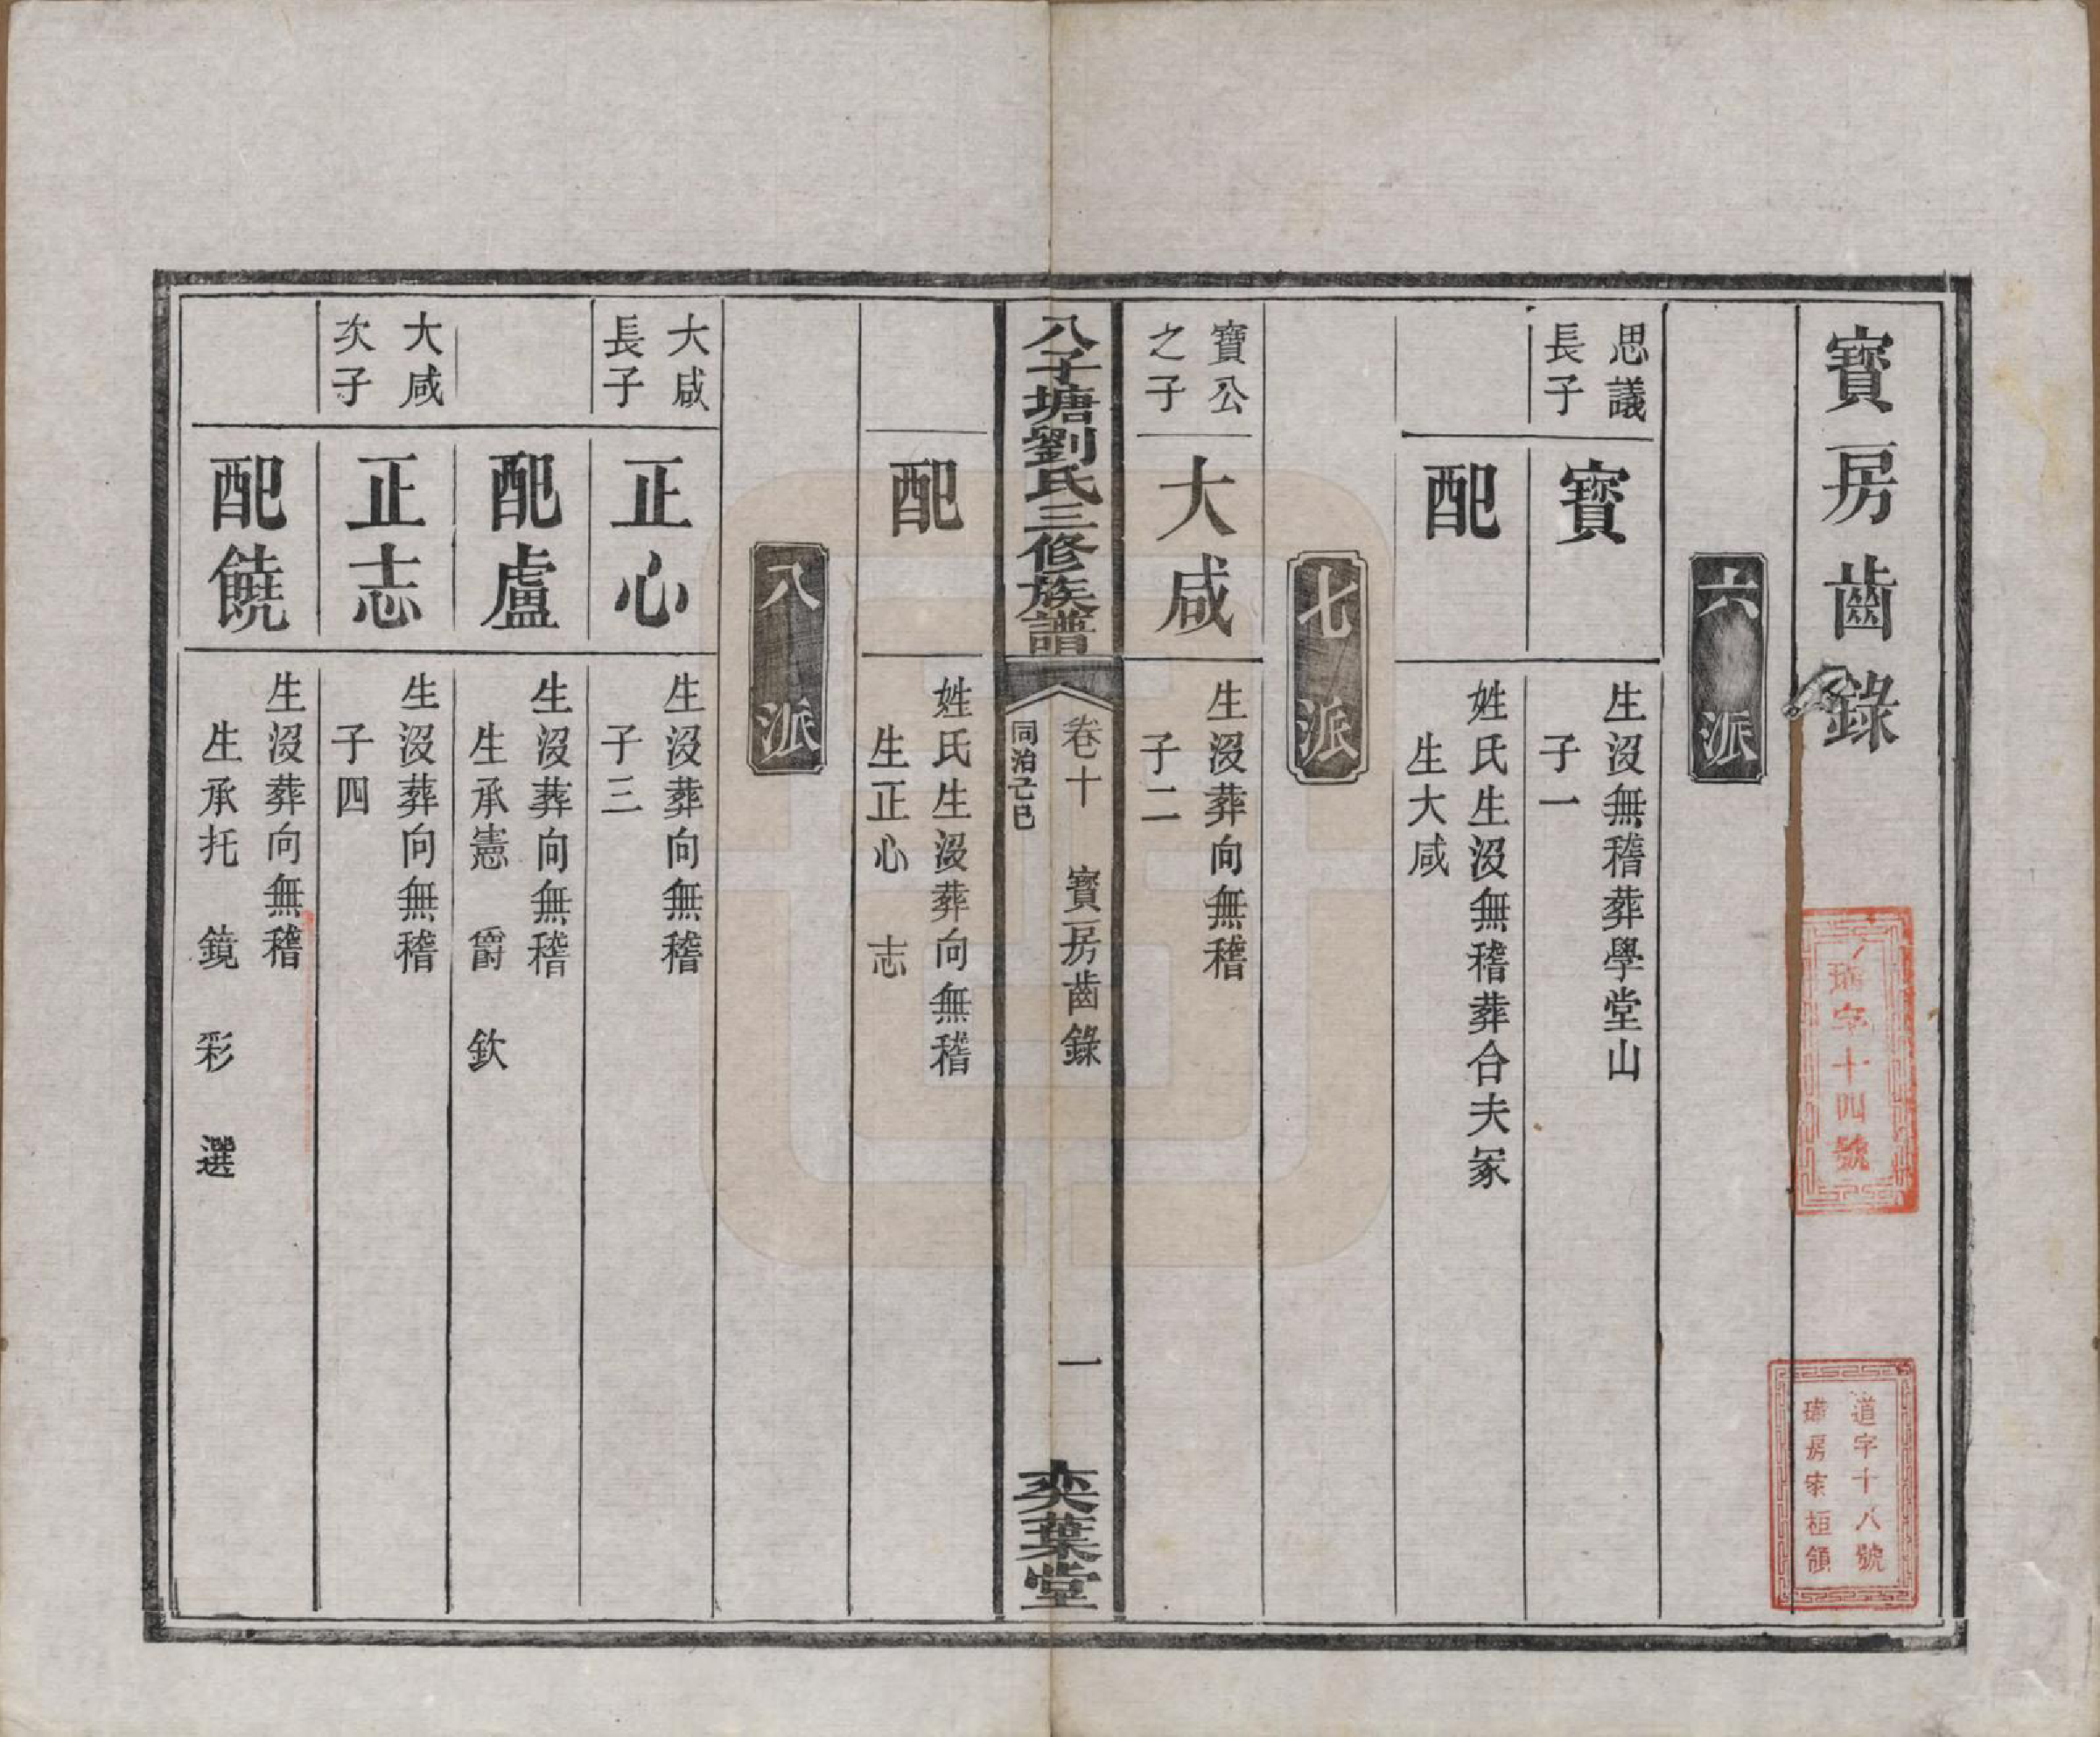 寶房齒錄
六派
思議
長子
寶
生沒無稽葬學堂山
子一
配
姓氏生沒無稽葬合夫冢
生大咸
七派
寶公
之子
大咸
生沒葬向無稽
子二
八子塘劉氏三修族譜
卷十 寶房齒錄
同治己巳
一
奕葉堂
配
姓氏生沒葬向無稽
生正心 志
八派
大咸
長子
正心
生沒葬向無稽
子三
配盧
生沒葬向無稽
生承憲 爵 欽
大咸
次子
正志
生沒葬向無稽
子四
配饒
生沒葬向無稽
生承托 鏡 彩 選
字十四號
道字十八號
房家桓領